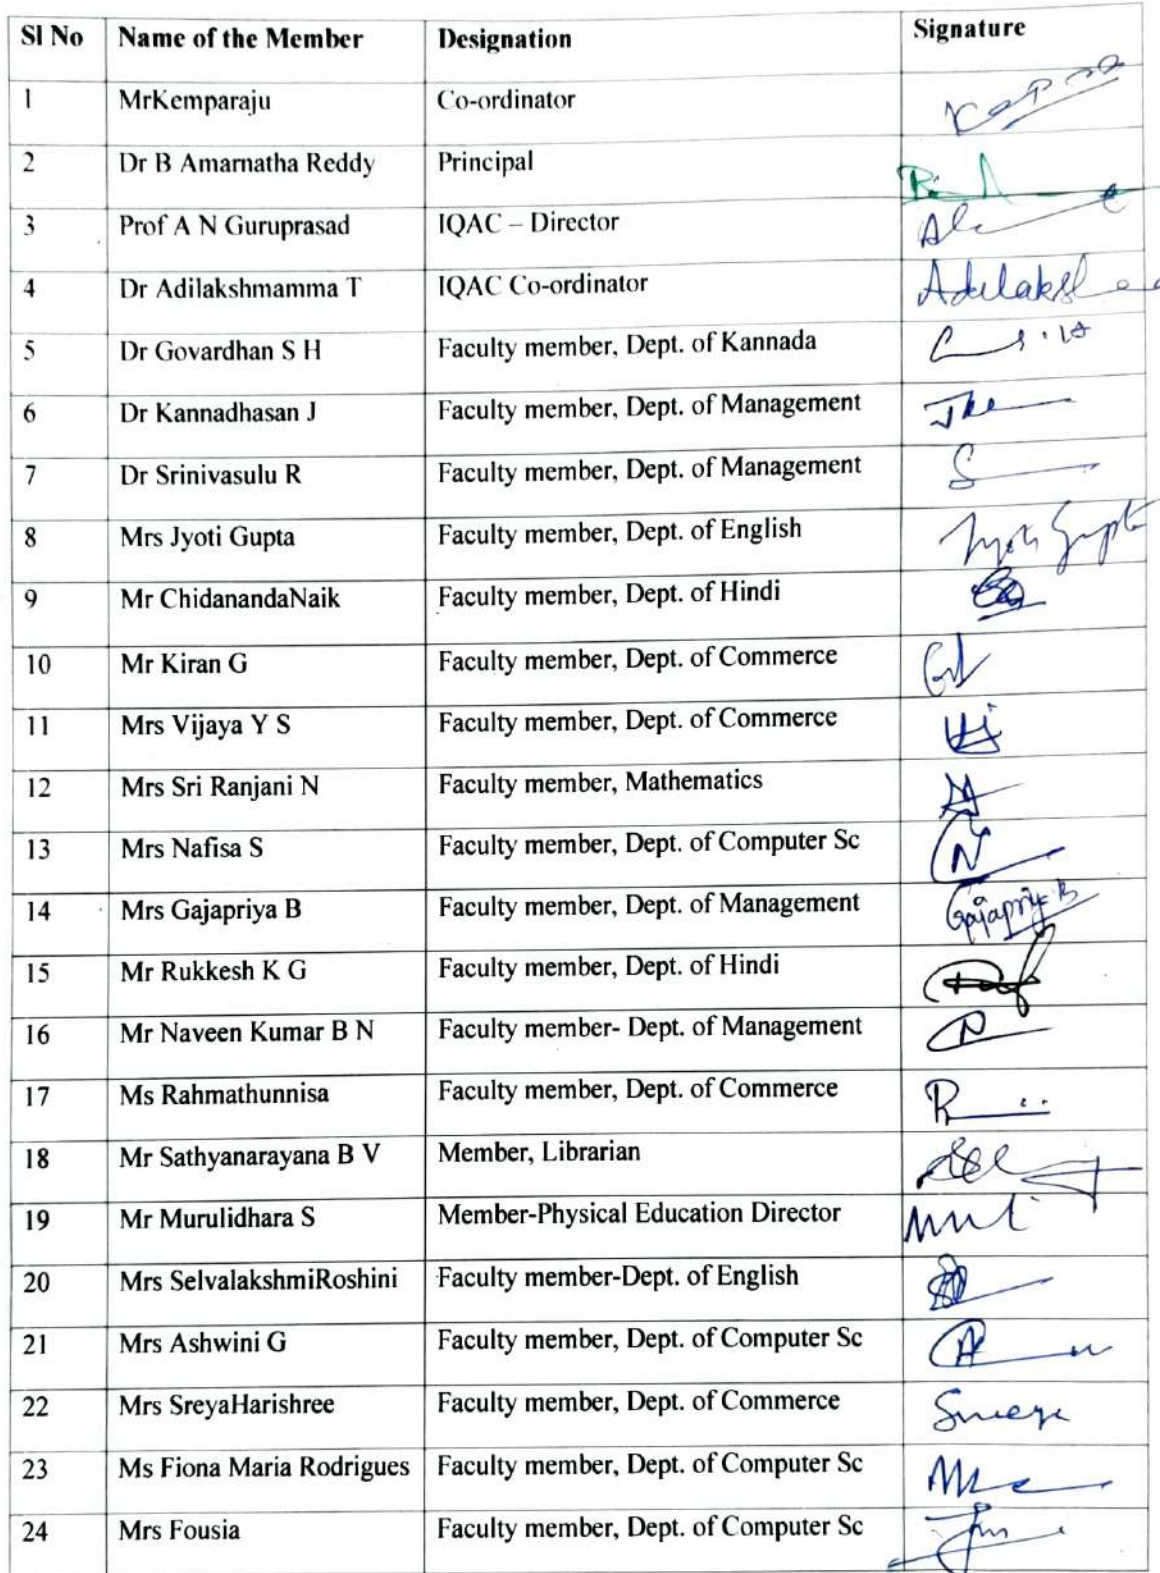 Sl No Name of the Member Designation Signature
1 MrKemparaju Co-ordinator
2 Dr B Amarnatha Reddy Principal
3 Prof A N Guruprasad IQAC – Director
4 Dr Adilakshmamma T IQAC Co-ordinator
5 Dr Govardhan S H Faculty member, Dept. of Kannada
6 Dr Kannadhasan J Faculty member, Dept. of Management
7 Dr Srinivasulu R Faculty member, Dept. of Management
8 Mrs Jyoti Gupta Faculty member, Dept. of English Jyoti Gupta
9 Mr ChidanandaNaik Faculty member, Dept. of Hindi
10 Mr Kiran G Faculty member, Dept. of Commerce
11 Mrs Vijaya Y S Faculty member, Dept. of Commerce
12 Mrs Sri Ranjani N Faculty member, Mathematics
13 Mrs Nafisa S Faculty member, Dept. of Computer Sc
14 Mrs Gajapriya B Faculty member, Dept. of Management Gajapriya B
15 Mr Rukkesh K G Faculty member, Dept. of Hindi
16 Mr Naveen Kumar B N Faculty member- Dept. of Management
17 Ms Rahmathunnisa Faculty member, Dept. of Commerce
18 Mr Sathyanarayana B V Member, Librarian
19 Mr Murulidhara S Member-Physical Education Director
20 Mrs SelvalakshmiRoshini Faculty member-Dept. of English
21 Mrs Ashwini G Faculty member, Dept. of Computer Sc
22 Mrs SreyaHarishree Faculty member, Dept. of Commerce
23 Ms Fiona Maria Rodrigues Faculty member, Dept. of Computer Sc
24 Mrs Fousia Faculty member, Dept. of Computer Sc